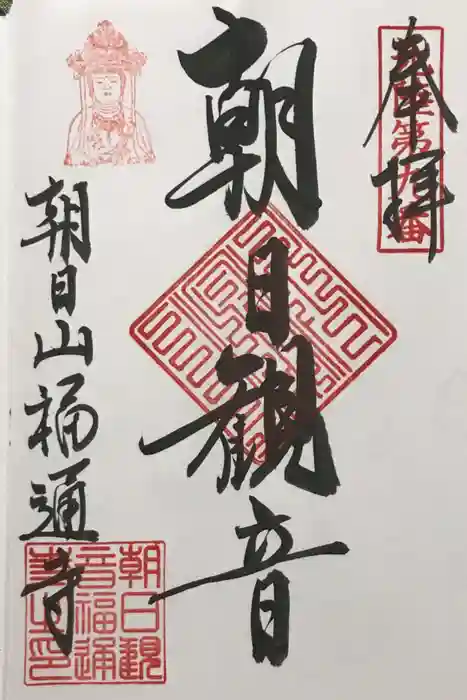 奉拝
北陸第九番
朝日観音
朝日山福通寺
朝日観
音福通
寺之印